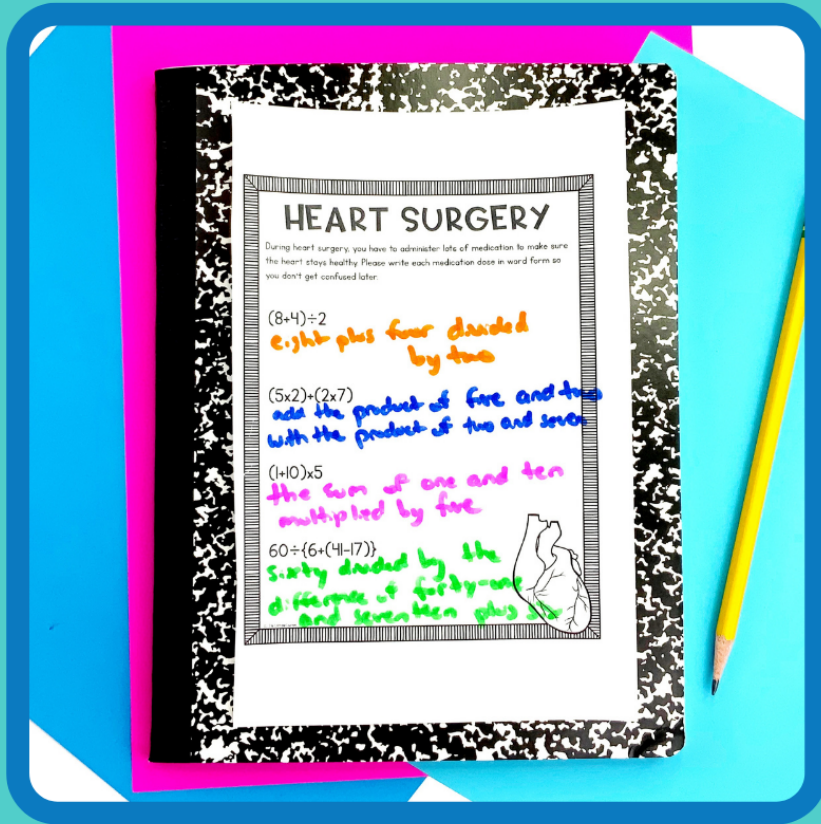 HEART SURGERY
During heart surgery, you have to administer lots of medication to make sure
the heart stays healthy. Please write each medication dose in word form so
you don't get confused later.
(8+4)÷2
eight plus four divided
by two
(5x2)+(2x7)
add the product of five and two
with the product of two and seven
(1+10)x5
the sum of one and ten
multiplied by five
60÷{6+(41-17)}
sixty divided by the
difference of forty-one
and seventeen plus six